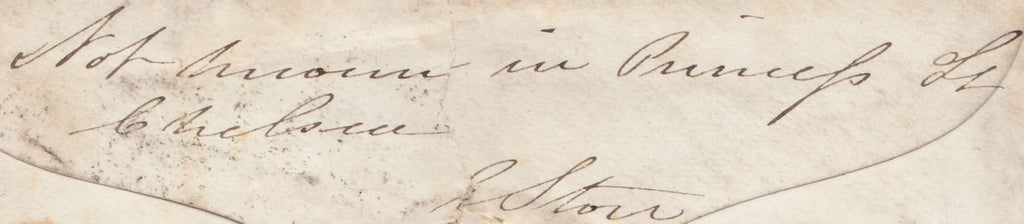 Not known in Princess St
Chelsea
E Storr